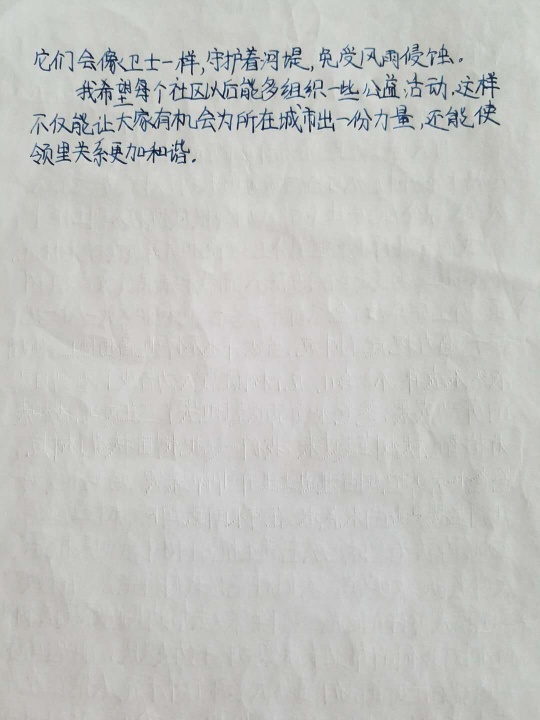 它们会像卫士一样,守护着河堤,免受风雨侵蚀。
我希望每个社区以后能多组织一些公益活动,这样
不仅能让大家有机会为所在城市出一份力量,还能使
领里关系更加和谐.